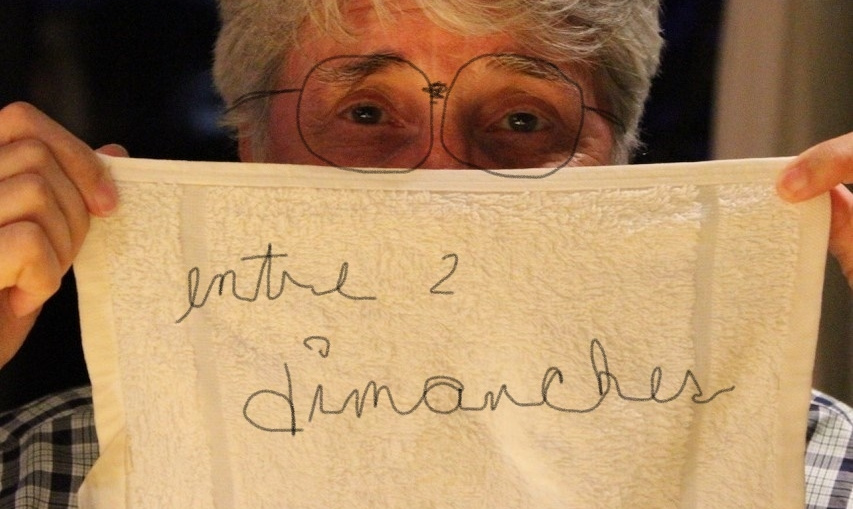 entre 2
dimanches